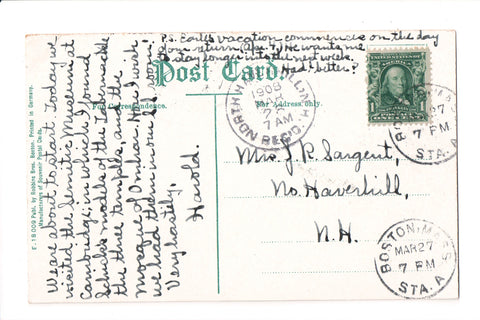 P.S. Earle's vacation commences on the day
of our return (Apr. 7). He wants me
to stay longer into the next week.
Had I better?
Post Card.
For Correspondence.
For Address only.
We are about to start. Today we
visited the Semitic Museum at
Cambridge, in which I found
Schick's models of the Tabernacle
the three temples, and the
Mosque of Omhar. How I wish
we had them in our S.S. room.
Very hastily,
Harold.
Mrs. J. R. Sargent,
No. Haverhill,
N.H.
1908
7 AM
NORTH
REC'D.
BOSTON, MASS
MAR 27
7 PM
STA. A
BOSTON, MASS
MAR 27
7 PM
STA. A
1
1
Publ. by Robbins Bros., Boston. Printed in Germany.
Manufacturers of Souvenir Postal Cards.